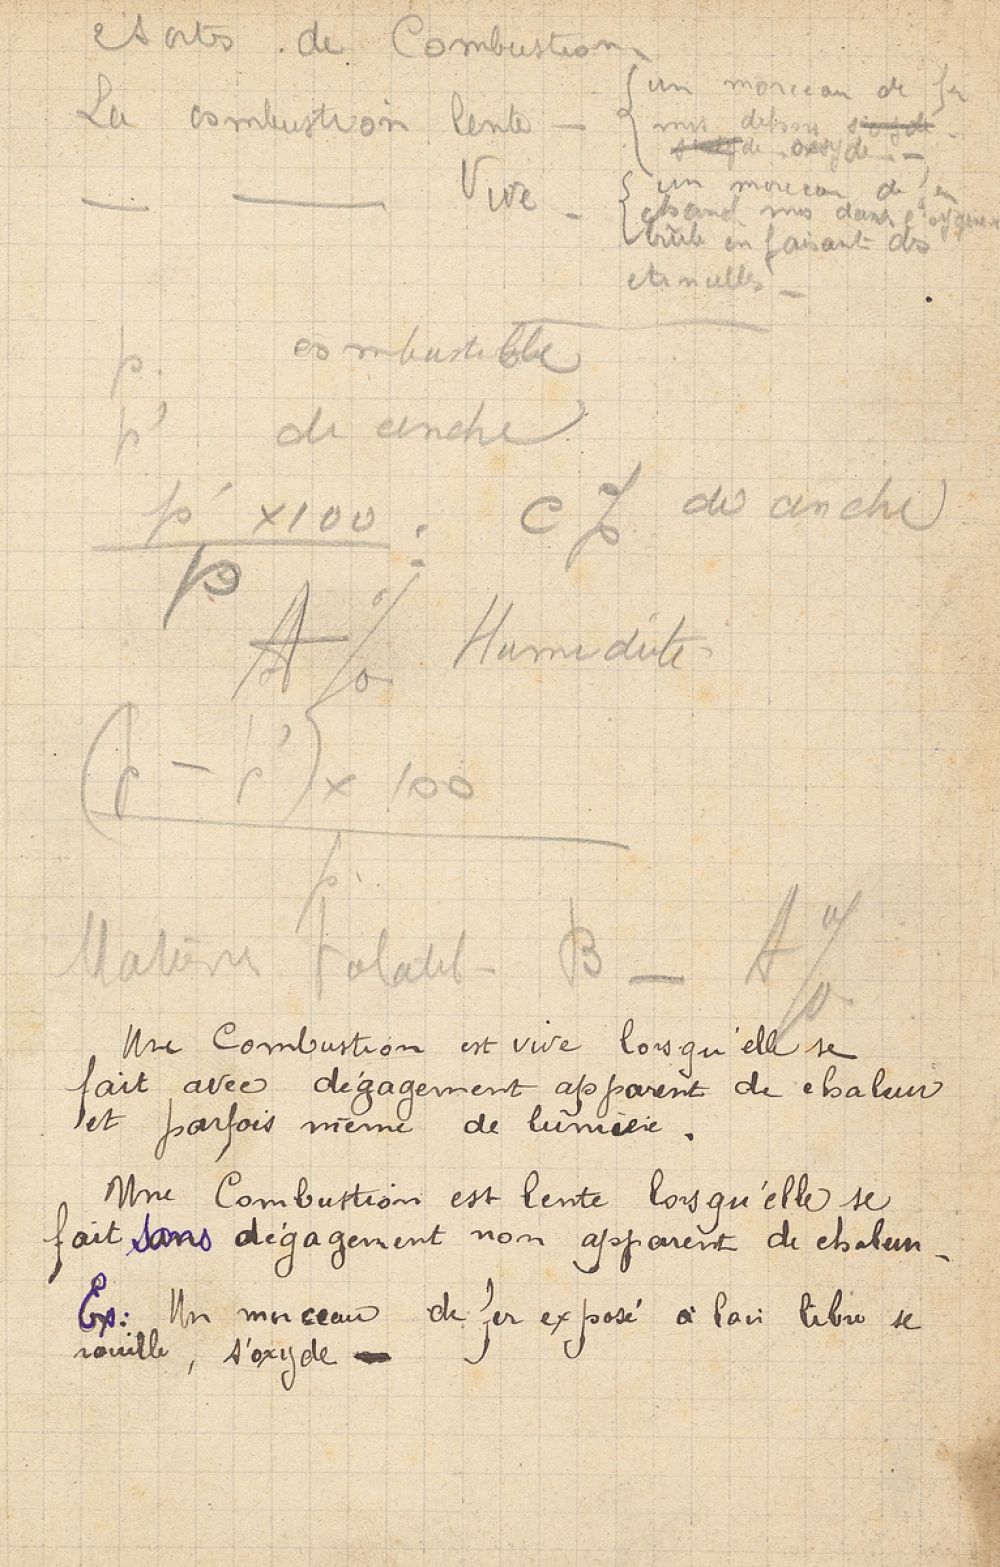 2 sortes de Combustion
La combustion lente – { un morceau de fer
mis dehors s'oxyde
s'oxyde oxyde –
— —— Vive – { un morceau de fer
chaud mis dans l'oxygène
brûle en faisant des
etincelles –
p. combustible
p' de cendre
p' x 100 : C % de cendre
p
A % Humidité
(p – p') x 100
p.
Matières Volatil – B – A %
Une Combustion est vive lorsqu'elle se
fait avec dégagement apparent de chaleur
et parfois même de lumière .
Une Combustion est lente lorsqu'elle se
fait sans dégagement non apparent de chaleur –
Ex: Un morceau de fer exposé à l'air libre se
rouille , s'oxyde –